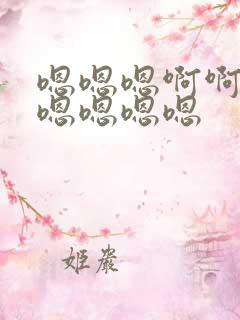 嗯嗯嗯啊啊
嗯嗯嗯嗯
姬岩